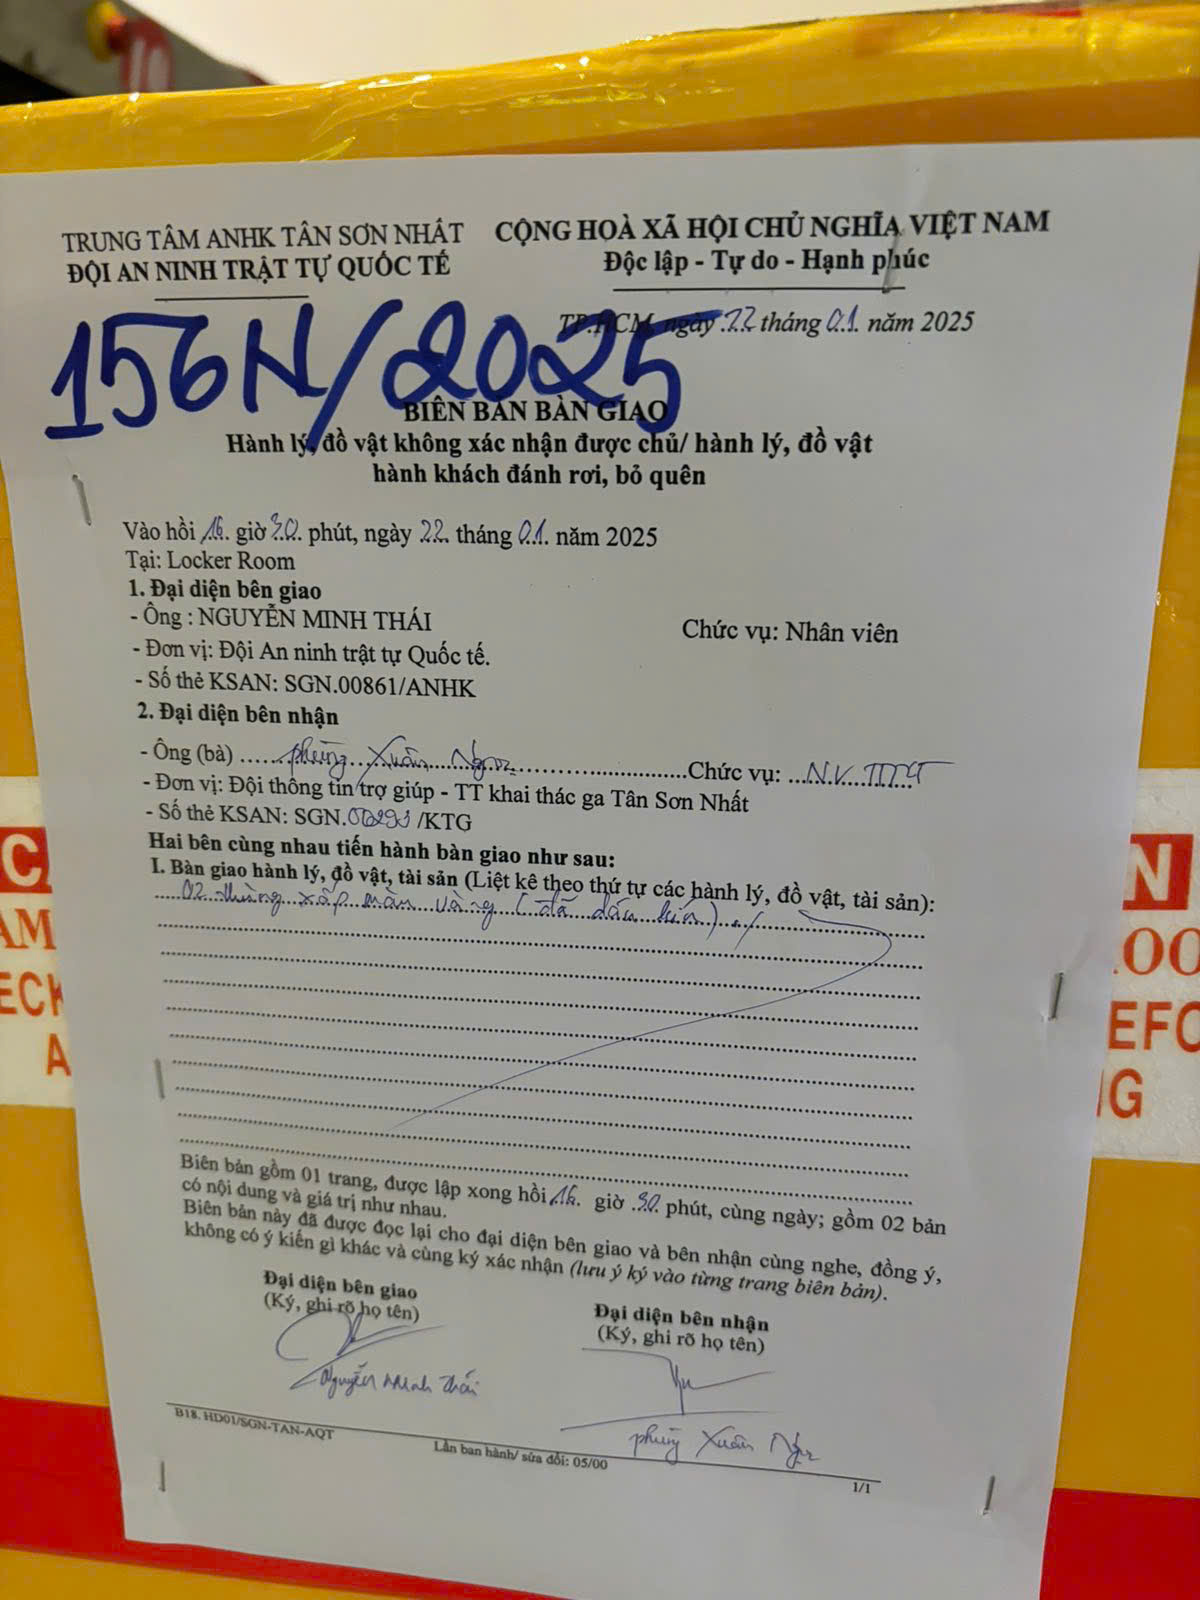 TRUNG TÂM ANHK TÂN SƠN NHẤT
ĐỘI AN NINH TRẬT TỰ QUỐC TẾ
CỘNG HOÀ XÃ HỘI CHỦ NGHĨA VIỆT NAM
Độc lập - Tự do - Hạnh phúc
TP.HCM, ngày 22 tháng 01. năm 2025
156N/2025
BIÊN BẢN BÀN GIAO
Hành lý, đồ vật không xác nhận được chủ/ hành lý, đồ vật
hành khách đánh rơi, bỏ quên
Vào hồi 16. giờ 30. phút, ngày 22. tháng 01. năm 2025
Tại: Locker Room
1. Đại diện bên giao
- Ông : NGUYỄN MINH THÁI Chức vụ: Nhân viên
- Đơn vị: Đội An ninh trật tự Quốc tế.
- Số thẻ KSAN: SGN.00861/ANHK
2. Đại diện bên nhận
- Ông (bà) ......phùng Xuân ...............Chức vụ: ...N.V. TTTGT
- Đơn vị: Đội thông tin trợ giúp - TT khai thác ga Tân Sơn Nhất
- Số thẻ KSAN: SGN. /KTG
Hai bên cùng nhau tiến hành bàn giao như sau:
I. Bàn giao hành lý, đồ vật, tài sản (Liệt kê theo thứ tự các hành lý, đồ vật, tài sản):
02 thùng xốp màu vàng (đã dán kín)
Biên bản gồm 01 trang, được lập xong hồi 16. giờ 30. phút, cùng ngày; gồm 02 bản
có nội dung và giá trị như nhau.
Biên bản này đã được đọc lại cho đại diện bên giao và bên nhận cùng nghe, đồng ý,
không có ý kiến gì khác và cùng ký xác nhận (lưu ý ký vào từng trang biên bản).
Đại diện bên giao
(Ký, ghi rõ họ tên)
Nguyễn Minh Thái
Đại diện bên nhận
(Ký, ghi rõ họ tên)
phùng Xuân
B18. HD01/SGN-TAN-AQT
Lần ban hành/ sửa đổi: 05/00
1/1
C
AM
ECK
A
N
ROO
EFO
NG